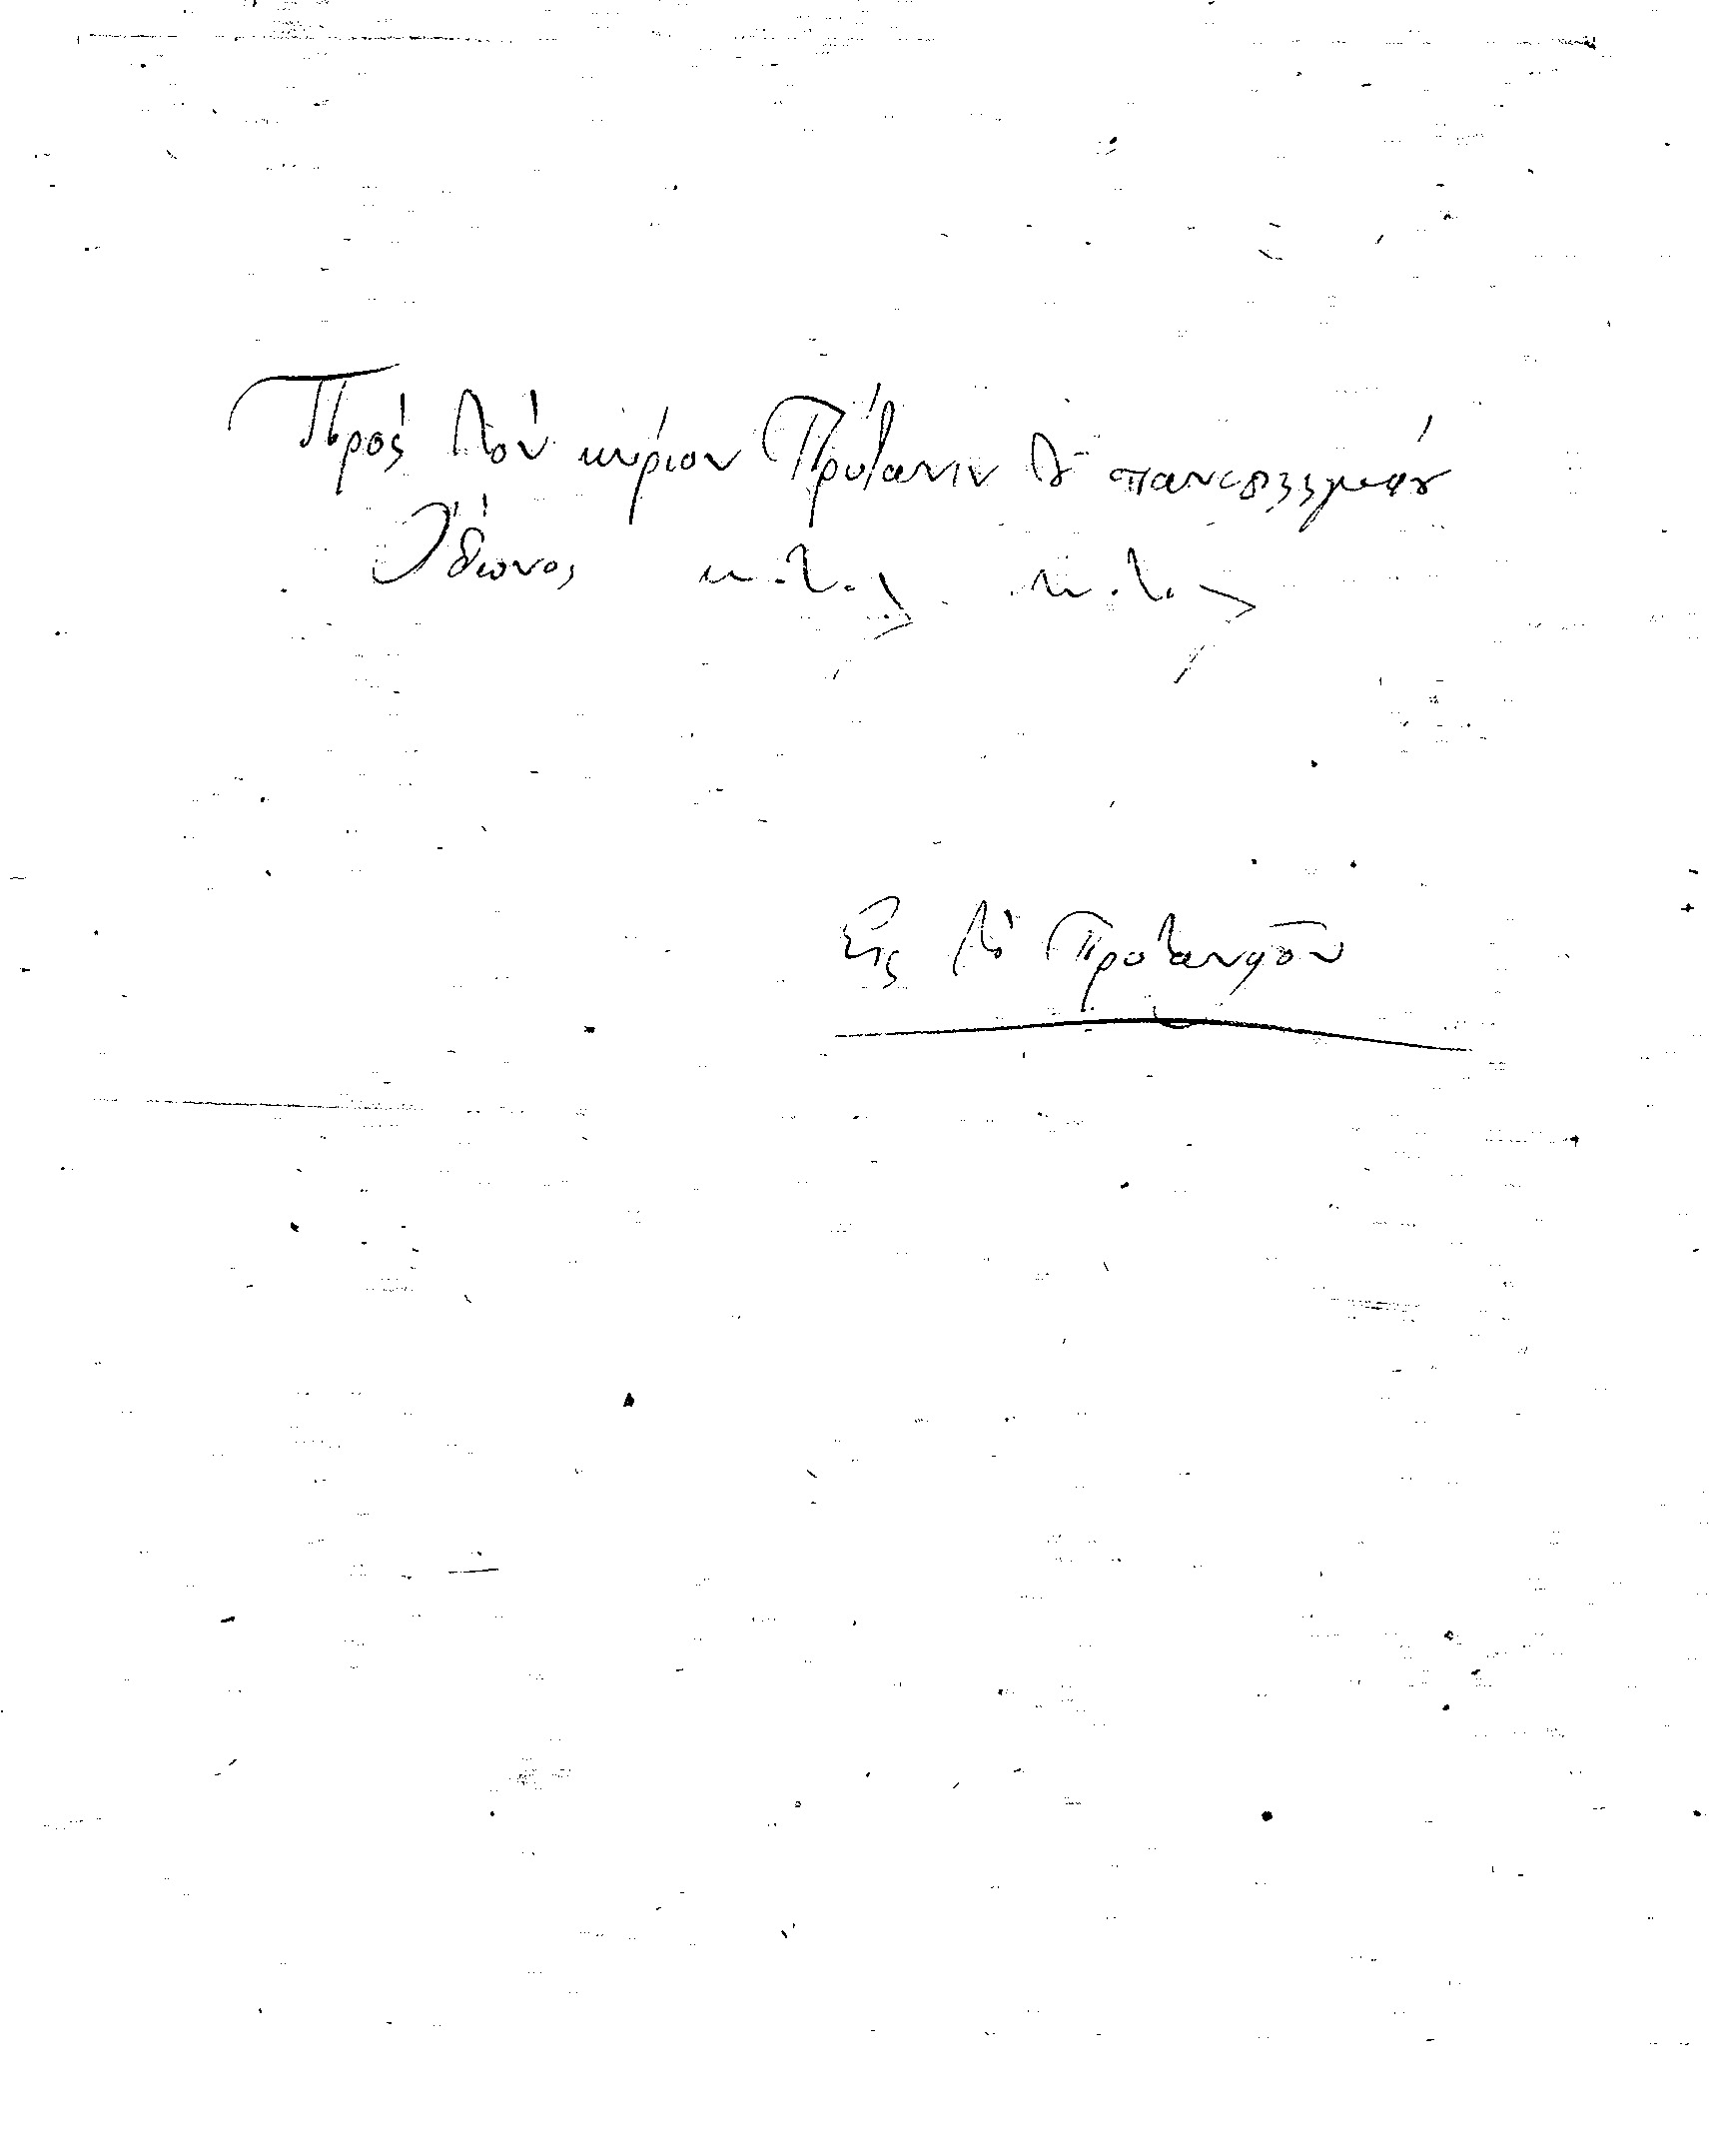 Πρός τόν κύριον Πρύτανιν τȣ͂ πανεπιστημίȣ
Ὄθωνος κ.τ.λ. κ.τ.λ.
Εἰς τό Πρυτανεῖον